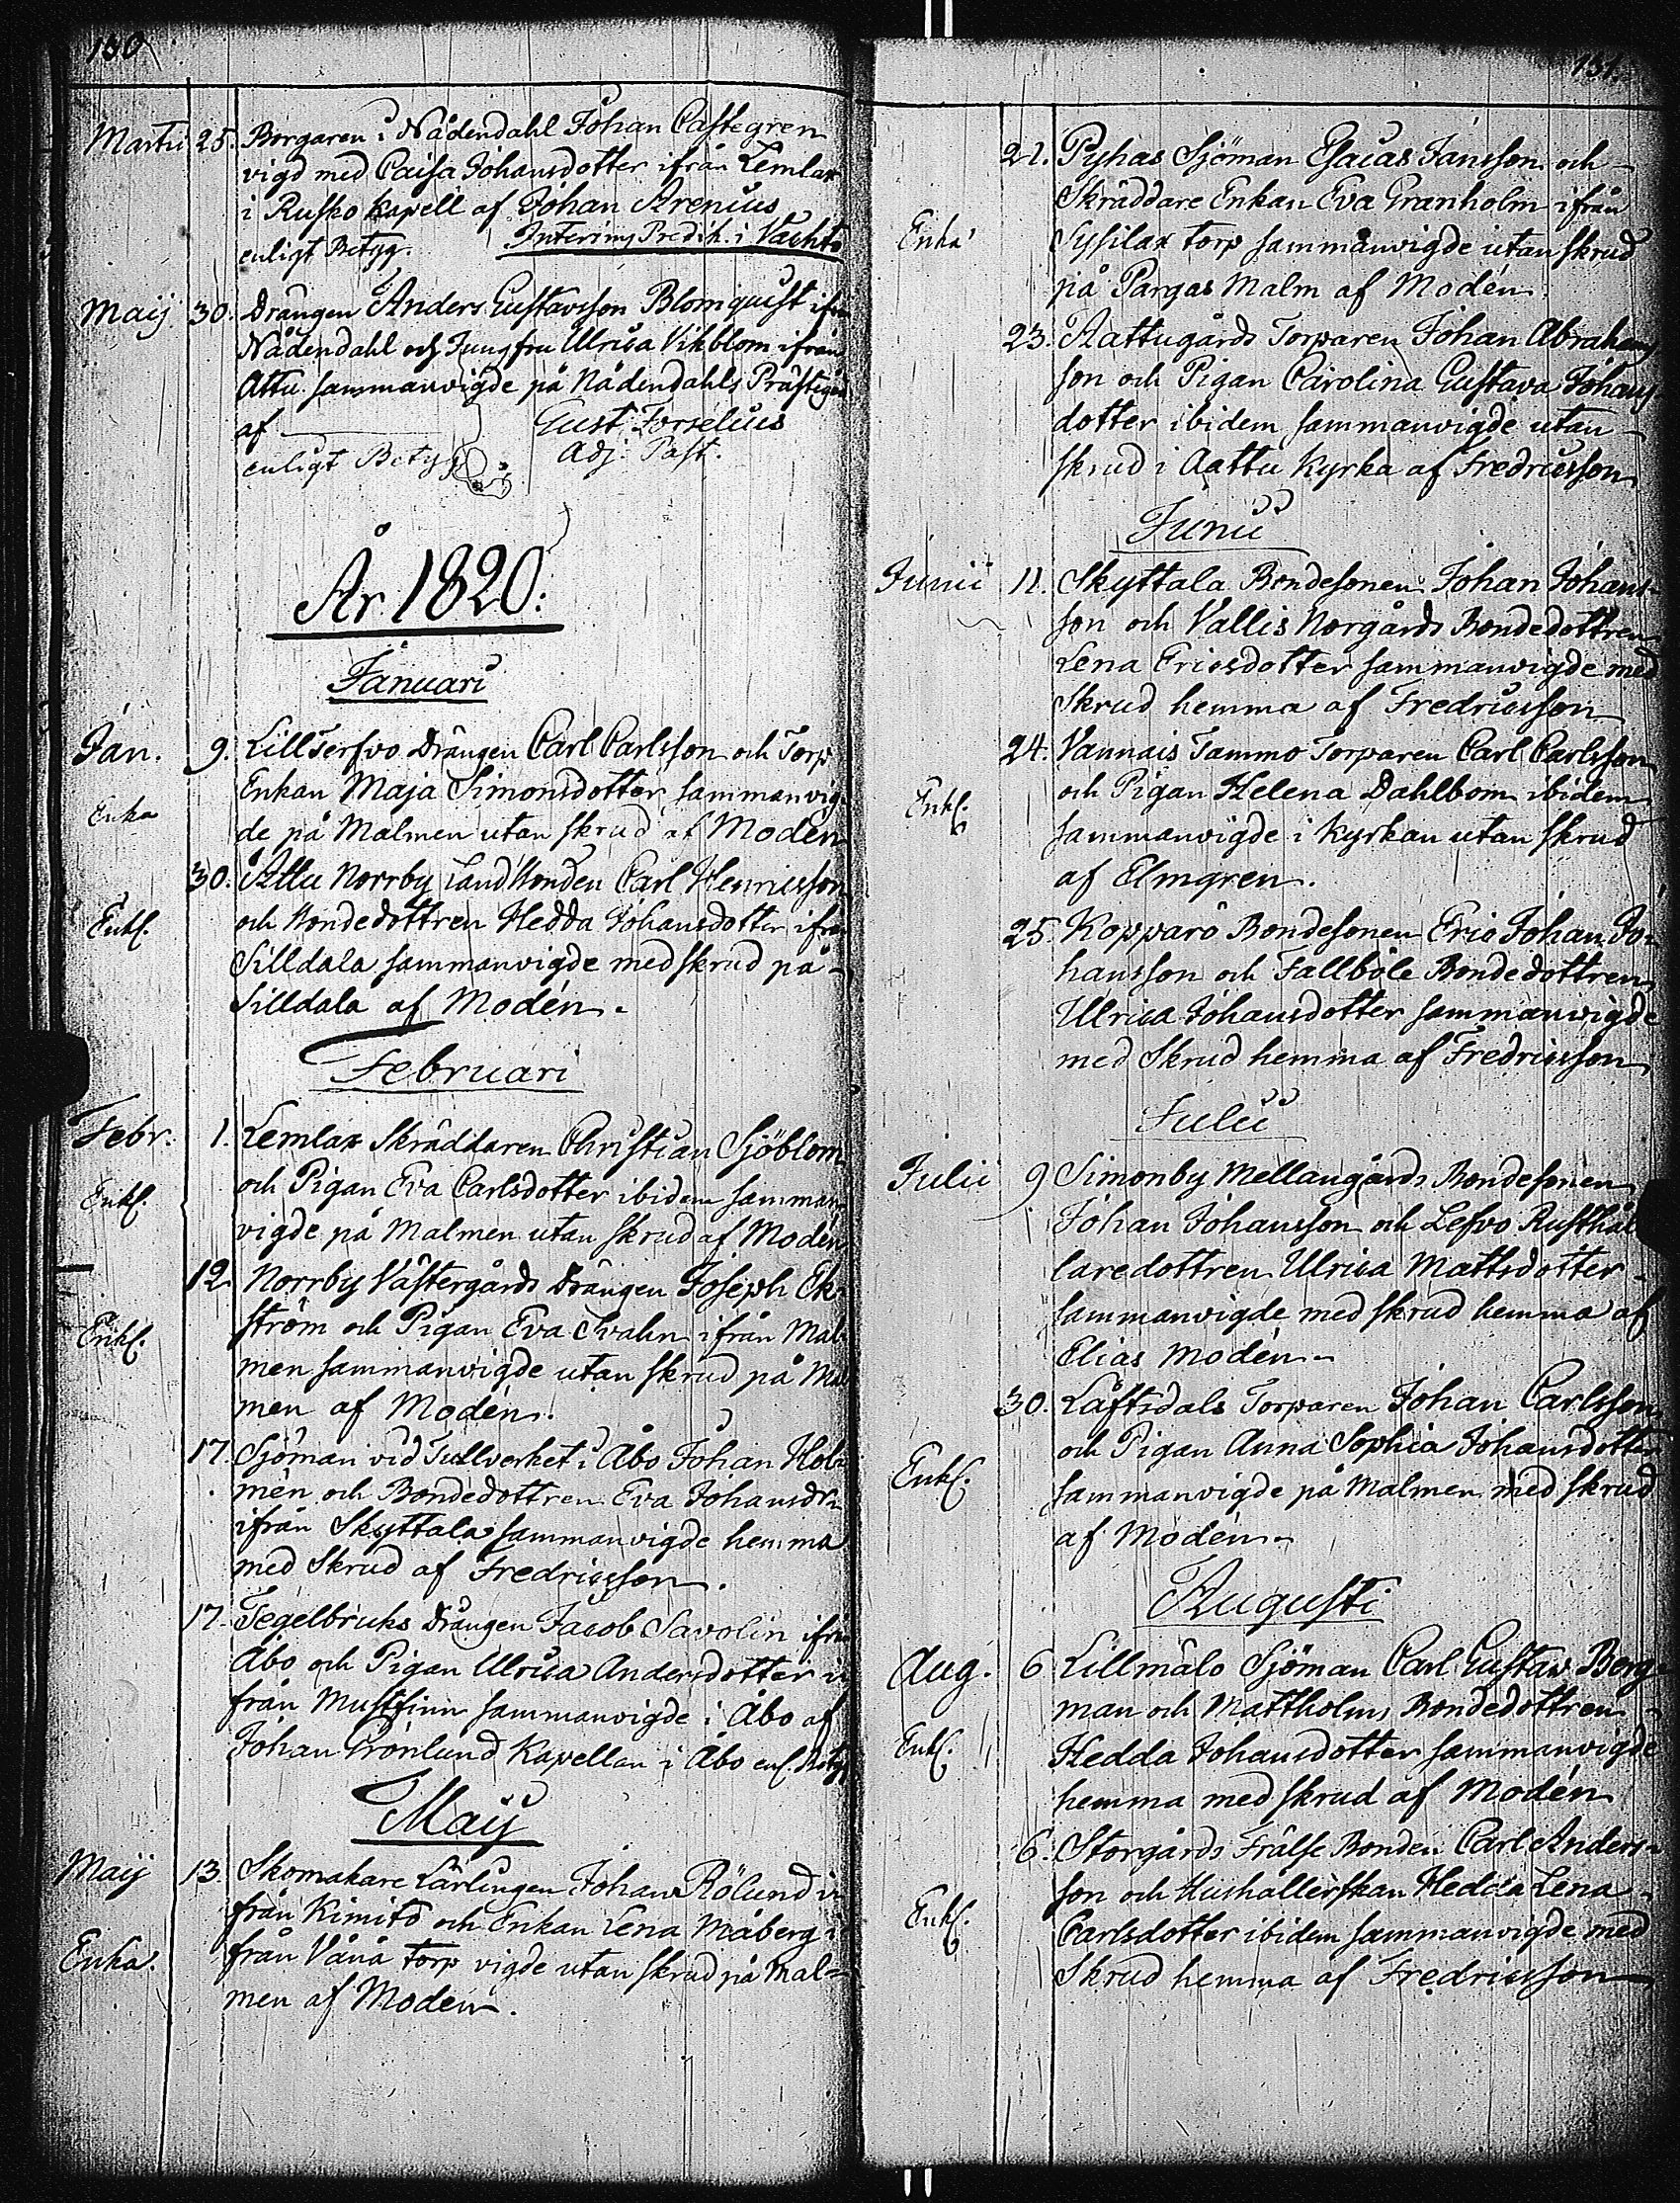 130
Martii 25. Borgaren i Nådendahl Johan Castegren
vigd med Caisa Johansdotter ifrån Lemlax
i Rusko Kapell af Johan Arenius
enligt Betyg. Interims Predik. i Vachto
Maij 30. Drängen Anders Gustavsson Blomquist ifrån
Nådendahl och Jungfru Ulrica Vikblom ifrån
Attu sammanvigde på Nådendahls Prästegård
af Gust. Forselius
enligt Betyg Adj. Past.
År 1820.
Januari
Jan. 9. Lill Terfvo Drängen Carl Carlsson och Torp
Enkan Maja Simonsdotter sammanvig-
Enka de på Malmen utan skrud af Modén
30. Attu Norrby Landbonden Carl Henricsson
Enkl. och Bondedottren Hedda Johansdotter ifrån
Silldala sammanvigde med skrud på
Silldala af Modén.
Februari
Febr. 1. Lemlax Skräddaren Christian Sjöblom
Enkl. och Pigan Eva Carlsdotter ibidem samman-
vigde på Malmen utan skrud af Modén
12. Norrby Västergårds Drängen Joseph Ek-
Enkl. ström och Pigan Eva Svahn ifrån Mal-
men sammanvigde utan skrud på Mal-
men af Modén.
17. Sjöman vid Tullverket i Åbo Johan Hol-
mén och Bondedottren Eva Johansdr
ifrån Skyttala sammanvigde hemma
med Skrud af Fredricsson.
17. Tegelbruks Drängen Jacob Savolin ifrån
Åbo och Pigan Ulrica Andersdotter i-
från Mustfinn sammanvigde i Åbo af
Johan Grönlund Kapellan i Åbo enl. Betyg
Maij
Maij 13. Skomakare Lärlingen Johan Rölund i-
från Kimito och Enkan Lena Måberg i-
Enka. från Vånå torp vigde utan skrud på Mal-
men af Modén.
131.
21. Pyhas Sjöman Esaias Jansson och
Skräddare Enkan Eva Granholm ifrån
Enka Sysilax torp sammanvigde utan skrud
på Pargas Malm af Modén.
23. Aattugårds Torparen Johan Abrahams
son och Pigan Carolina Gustava Johans
dotter ibidem sammanvigde utan
skrud i Aattu Kyrka af Fredricsson
Junii
Junii 11. Skyttala Bondesonen Johan Johans-
son och Vallis Norgårds Bondedottren
Lena Ericsdotter sammanvigde med
Skrud hemma af Fredricsson
24. Vannais Tammo Torparen Carl Carlsson
Enkl. och Pigan Helena Dahlbom ibidem
sammanvigde i Kyrkan utan skrud
af Elmgren.
25. Kopparö Bondesonen Eric Johan Jo-
hansson och Fallböle Bondedottren
Ulrica Johansdotter sammanvigde
med Skrud hemma af Fredricsson
Julii
Julii 9 Simonby Mellangårds Bondesonen
Johan Johansson och Lefvo Rusthål
laredottren Ulrica Mattsdotter
sammanvigde med skrud hemma af
Elias Modén
30. Låftsdals Torparen Johan Carlsson
och Pigan Anna Sophia Johansdotter
Enkl. sammanvigde på Malmen med skrud
af Modén
Augusti
Aug. 6 Lillmälo Sjöman Carl Gustav Berg-
man och Mattholm Bondedottren
Enkl. Hedda Johansdotter sammanvigde
hemma med skrud af Modén
6. Storgårds Frälse Bonden Carl Anders-
son och Hushållerskan Hedda Lena
Enkl. Carlsdotter ibidem sammanvigde med
Skrud hemma af Fredricsson